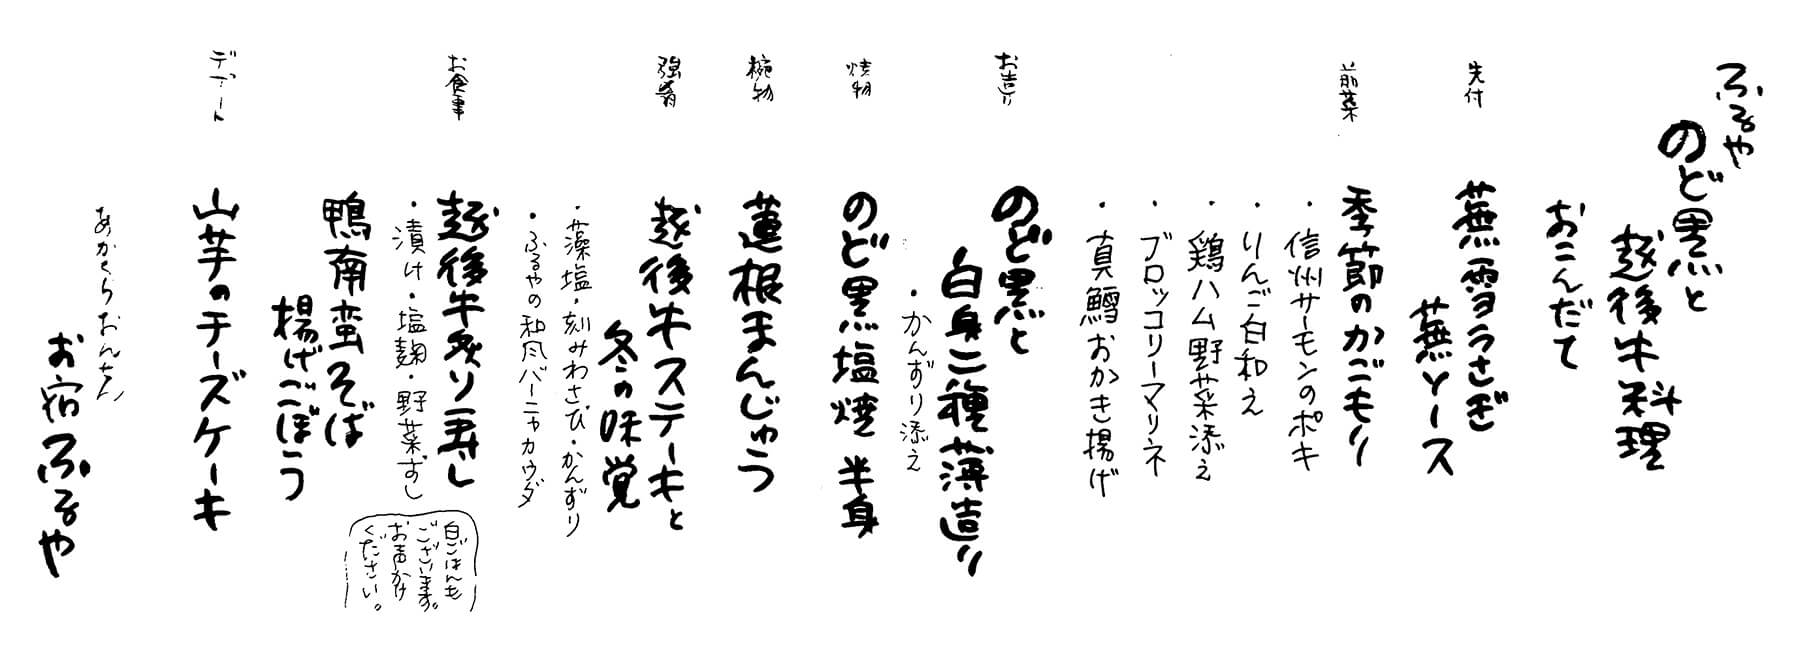 ふるや
のど黒と
越後牛料理
おこんだて
先付
蕪雪うさぎ
蕪ソース
前菜
季節のかごもり
・信州サーモンのポキ
・りんご白和え
・鶏ハム野菜添え
・ブロッコリーマリネ
・真鱈おかき揚げ
お造り
のど黒と
白身二種薄造り
・かんずり添え
焼物
のど黒塩焼 半身
椀物
蓮根まんじゅう
強肴
越後牛ステーキと
冬の味覚
・藻塩・刻みわさび・かんずり
・ふるやの和風バーニャカウダ
お食事
越後牛炙り寿し
・漬け・塩麹・野菜ずし
白ごはんも
ございます。
お声かけ
ください。
鴨南蛮そば
揚げごぼう
デザート
山芋のチーズケーキ
あかくらおんせん
お宿ふるや